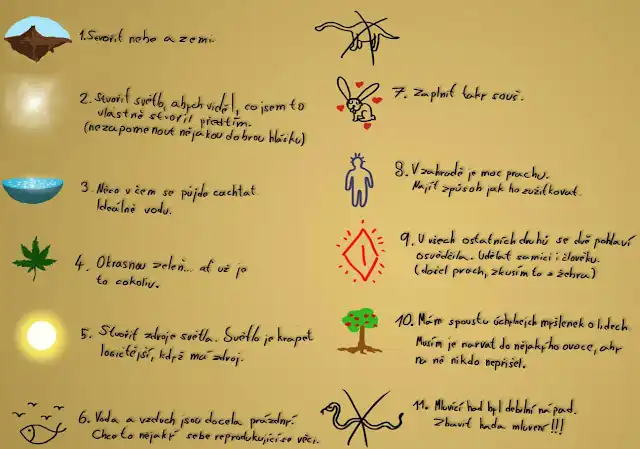 1. Stvořit nebe a zemi.
2. Stvořit světlo, abych viděl, co jsem to
vlastně stvořil předtím.
(nezapomenout nějakou dobrou hlášku)
3. Něco v čem se půjde cachtat.
Ideálně vodu.
4. Okrasnou zeleň... ať už je
to cokoliv.
5. Stvořit zdroje světla. Světlo je krapet
logičtější, když má zdroj.
6. Voda a vzduch jsou docela prázdný.
Chce to nějaký sebe reprodukující se věci.
7. Zaplnit taky souš.
8. V zahradě je moc prachu.
Najít způsob jak ho zužitkovat.
9. U všech ostatních druhů se dvě pohlaví
osvědčila. Udělat samici i člověku.
(došel prach, zkusím to z žebra)
10. Mám spoustu úchylnejch myšlenek o lidech.
Musím je narvat do nějakýho ovoce, aby
na ně nikdo nepřišel.
11. Mluvící had byl debilní nápad.
Zbavit hada mluvení!!!